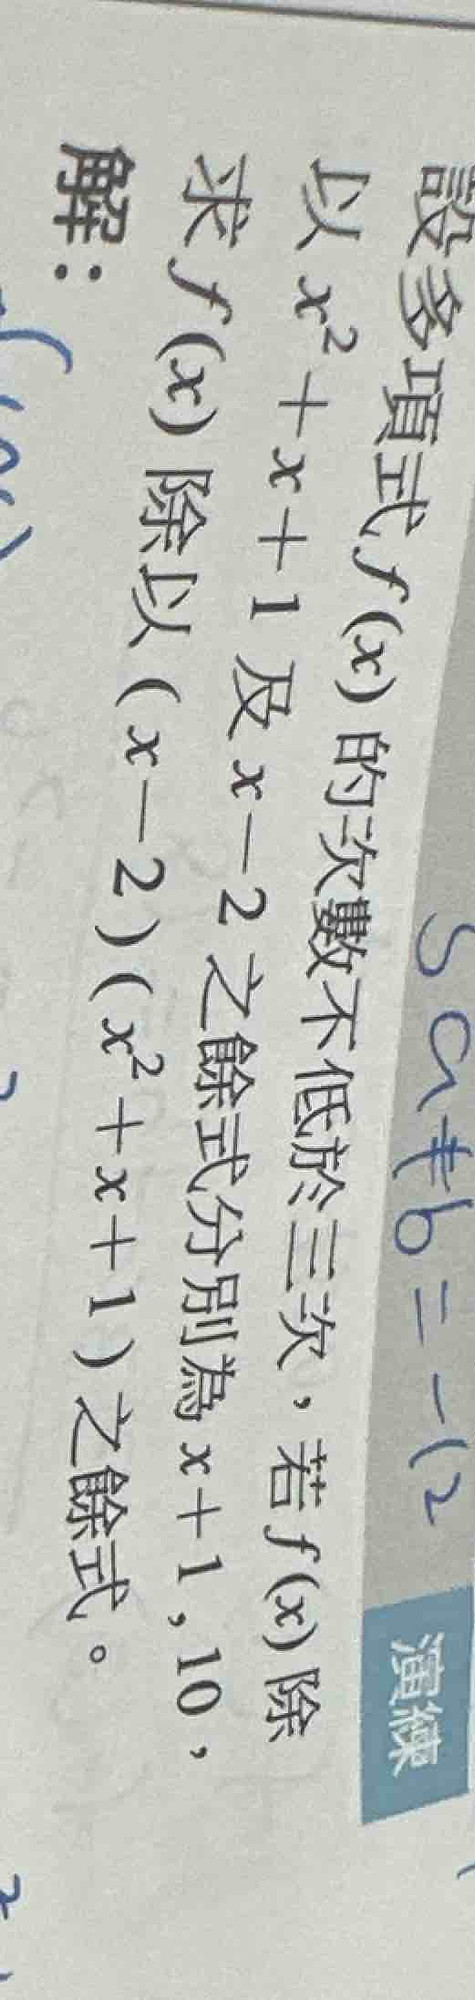 5a+b=-12
演練
設多項式 f(x) 的次數不低於三次，若 f(x) 除
以 x²+x+1 及 x-2 之餘式分別為 x+1，10，
求 f(x) 除以 (x-2)(x²+x+1) 之餘式。
解：